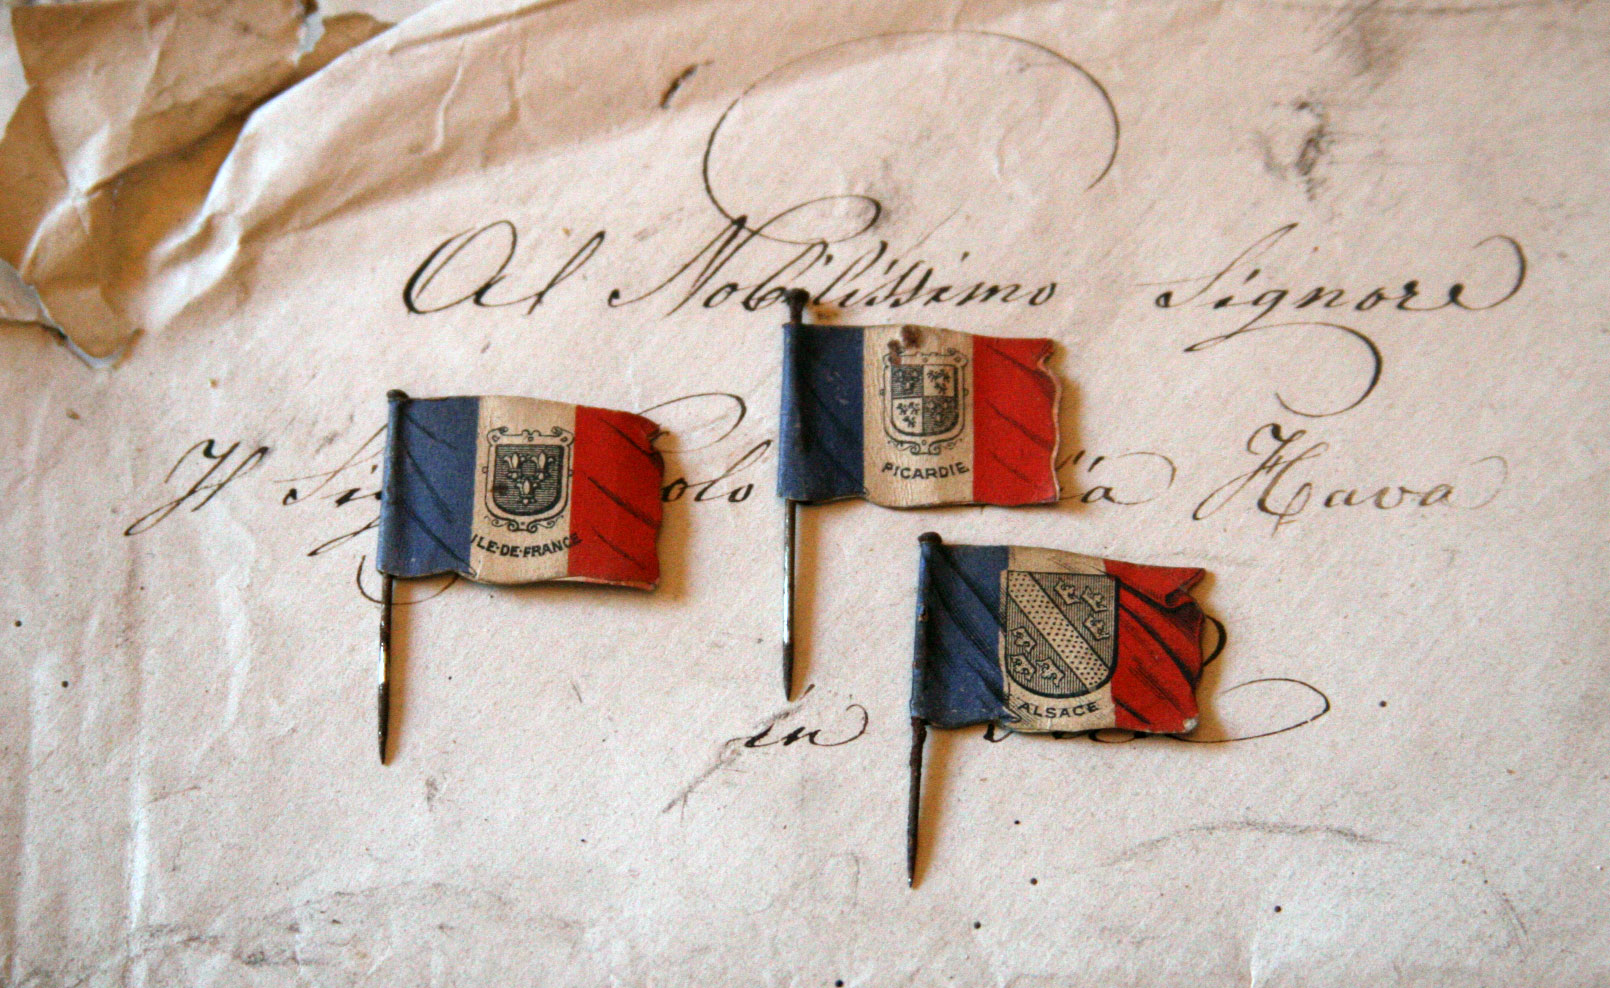 Al Nobilissimo Signore
Il olo Hava
in
ILE-DE-FRANCE
PICARDIE
ALSACE